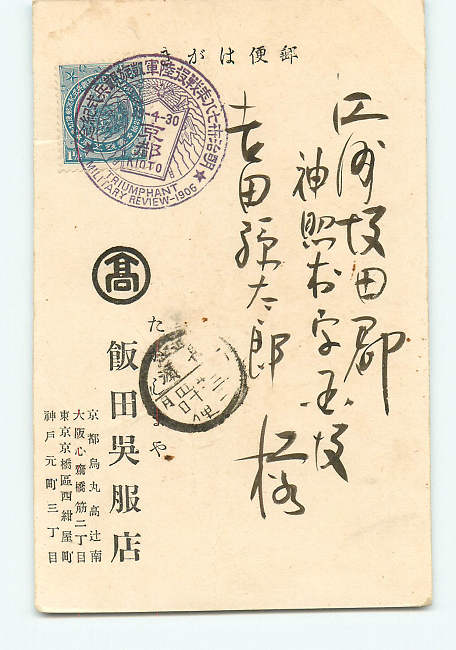 郵便はがき
明治卅七八年戰役陸軍凱旋觀兵式紀念
4-30
京都
KIOTO
TRIUMPHANT
MILITARY REVIEW-1906
江州坂田郡
神照村字
吉田源太郎様
髙
たかしまや
飯田呉服店
京都烏丸高辻南
大阪心齋橋筋二丁目
東京京橋區西紺屋町
神戸元町三丁目